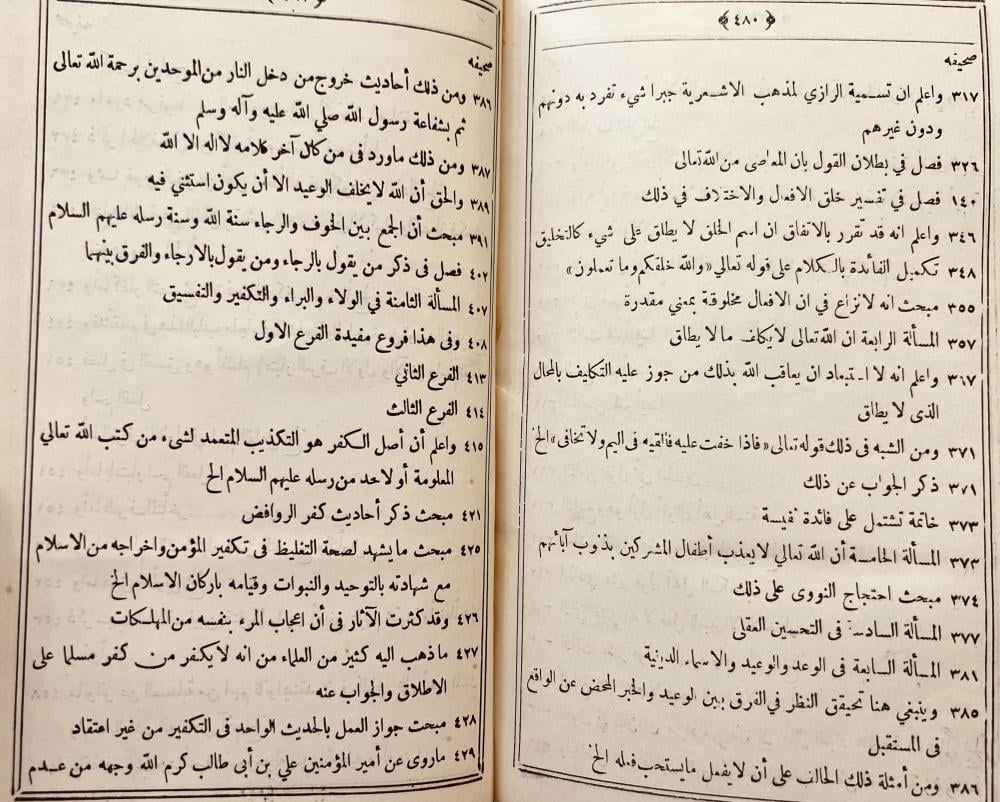 ﴿٤٨٠﴾
صحيفه
٣١٧ واعلم ان تسمية الرازي لمذهب الاشعرية جبرا شيء تفرد به دونهم
ودون غيرهم
٣٢٦ فصل في بطلان القول بان المعاصى من الله تعالى
١٤٠ فصل في تفسير خلق الافعال والاختلاف في ذلك
٣٤٦ واعلم انه قد تقرر بالاتفاق ان اسم الخلق لا يطلق على شيء كالتخليق
٣٤٨ تكميل الفائدة بالكلام على قوله تعالي «والله خلقكم وما تعملون»
٣٥٥ مبحث انه لا نزاع في ان الافعال مخلوقة بمعني مقدرة
٣٥٧ المسألة الرابعة ان الله تعالى لا يكلف ما لا يطاق
٣٦٧ واعلم انه لا استبعاد ان يعاقب الله بذلك من جوز عليه التكليف بالمحال
الذى لا يطاق
٣٧١ ومن الشبه في ذلك قوله تعالى «فاذا خفت عليه فألقيه فى اليم ولا تخافى» الخ
٣٧١ ذكر الجواب عن ذلك
٣٧٣ خاتمة تشتمل على فائدة نفيسة
٣٧٣ المسألة الخامسة أن الله تعالي لا يعذب أطفال المشركين بذنوب آبائهم
٣٧٤ مبحث احتجاج النووى على ذلك
٣٧٧ المسألة السادسة فى التحسين العقلى
٣٨١ المسألة السابعة فى الوعد والوعيد والاسماء الدينية
٣٨٥ وينبغي هنا تحيقق النظر في الفرق بين الوعيد والخبر المحض عن الواقع
فى المستقبل
٣٨٦ ومن أمثلة ذلك الحالف على أن لا يفعل ما يستحب فعله الخ
صحيفه
٣٨٦ ومن ذلك أحاديث خروج من دخل النار من الموحدين برحمة الله تعالى
ثم بشفاعة رسول الله صلي الله عليه وآله وسلم
٣٨٧ ومن ذلك ما ورد فى من كان آخر كلامه لا اله الا الله
٣٨٩ والحق أن الله لا يخلف الوعيد الا أن يكون استثني فيه
٣٩١ مبحث أن الجمع بين الخوف والرجاء سنة الله وسنة رسله عليهم السلام
٤٠٢ فصل فى ذكر من يقول بالرجاء ومن يقول بالارجاء والفرق بينهما
٤٠٧ المسألة الثامنة في الولاء والبراء والتكفير والتفسيق
٤٠٨ وفى هذا فروع مفيدة الفرع الاول
٤١٣ الفرع الثاني
٤١٤ الفرع الثالث
٤١٥ واعلم أن أصل الكفر هو التكذيب المتعمد لشيء من كتب الله تعالي
المعلومة أو لاحد من رسله عليهم السلام الخ
٤٢١ مبحث ذكر أحاديث كفر الروافض
٤٢٥ مبحث ما يشهد لصحة التغليظ فى تكفير المؤمن واخراجه من الاسلام
مع شهادته بالتوحيد والنبوات وقيامه باركان الاسلام الخ
٤٢٦ وقد كثرت الآثار فى أن اعجاب المرء بنفسه من المهلكات
٤٢٧ ما ذهب اليه كثيز من العلماء من انه لا يكفر من كفر مسلما على
الاطلاق والجواب عنه
٤٢٨ مبحث جواز العمل بالحديث الواحد فى التكفير من غير اعتقاد
٤٢٩ ماروى عن أمير المؤمنين علي بن أبى طالب كرم الله وجهه من عدم